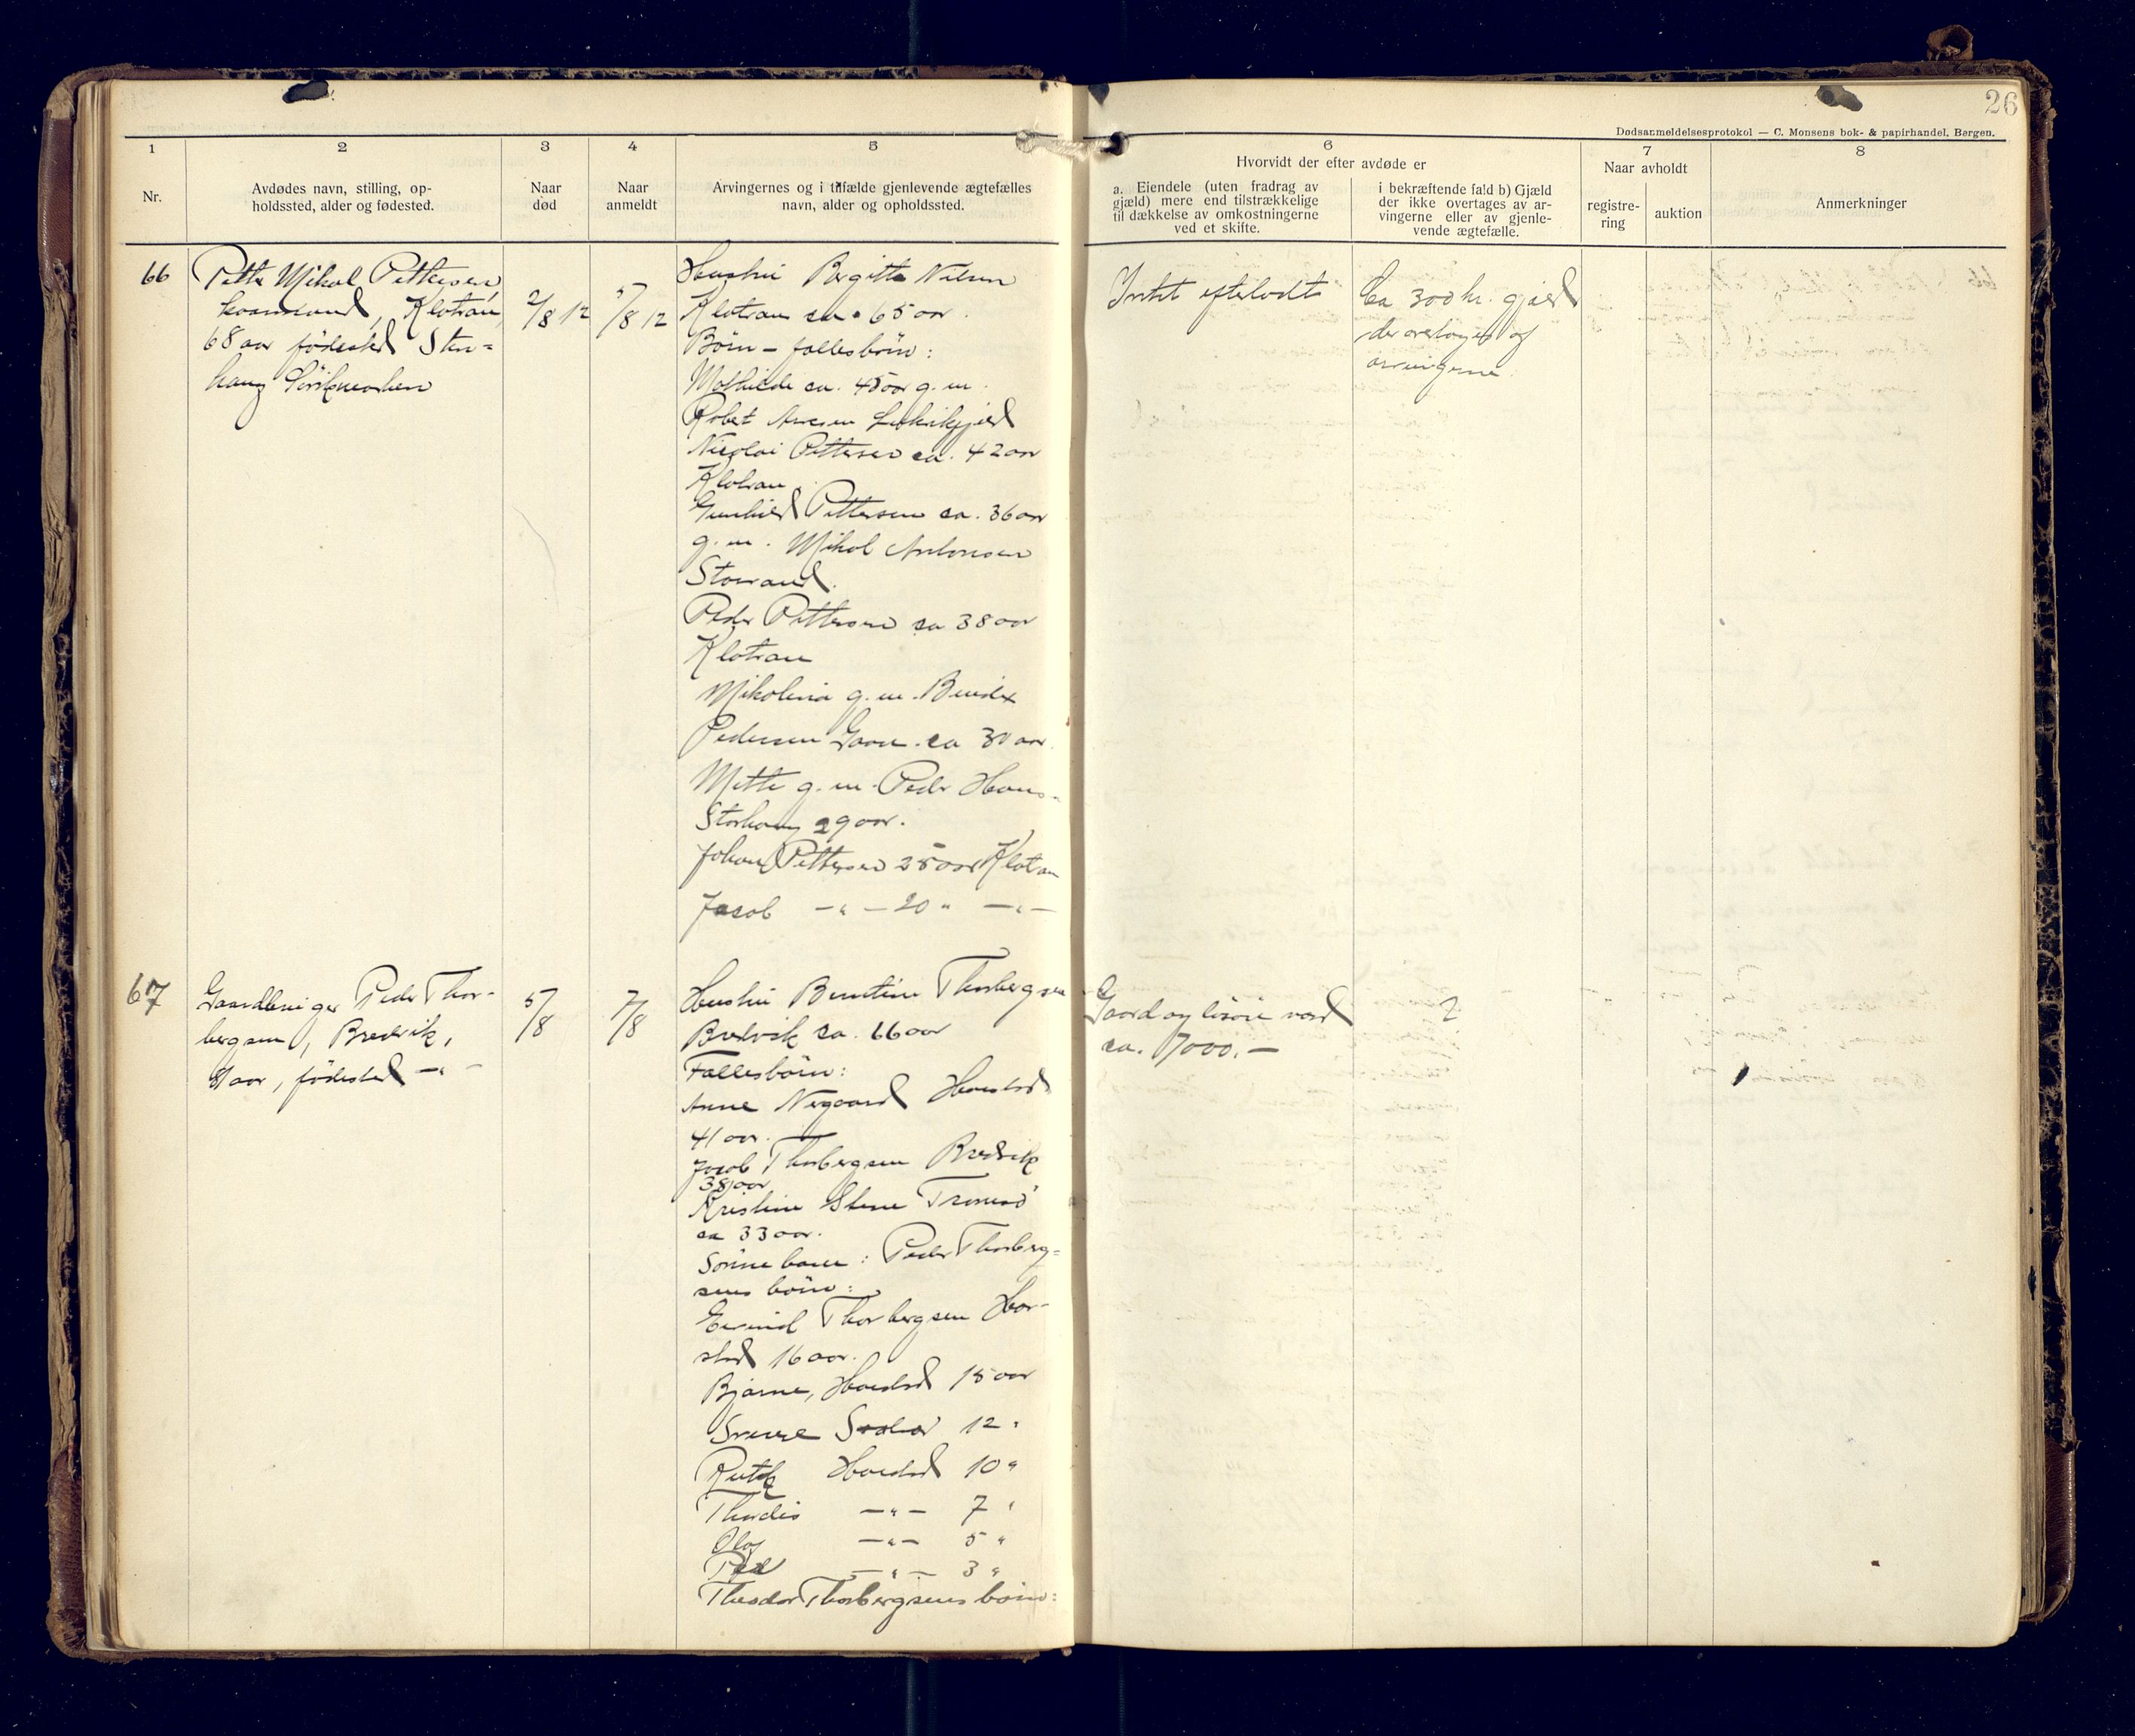 26
Dødsanmeldelsesprotokol — C. Monsens bok- & papirhandel, Bergen.
1
2
3
4
5
6
7
8
Nr.
Avdødes navn, stilling, op-
holdssted, alder og fødested.
Naar
død
Naar
anmeldt
Arvingernes og i tilfælde gjenlevende ægtefælles
navn, alder og opholdssted.
Hvorvidt der efter avdøde er
a. Eiendele (uten fradrag av
gjæld) mere end tilstrækkelige
til dækkelse av omkostningerne
ved et skifte.
i bekræftende fald b) Gjæld
der ikke overtages av ar-
vingerne eller av gjenle-
vende ægtefælle.
Naar avholdt
registre-
ring
auktion
Anmerkninger
66
Petter Mikal Pettersen
Klotran,
68 aar fødested Sten-
haug
2/8 12
5/8 12
Hustru Bergitte Nilsen
Klotran ca. 65 aar.
Börn - fællesbörn:
Mathilde ca. 45 aar g. m.
Robet
Nicolai Pettersen ca. 42 aar
Klotran.
Gunhild Pettersen ca. 36 aar
g. m. Mikal Antonsen
Storrand.
Peder Pettersen ca 38 aar
Klotran
Mikolina g. m. Bendix
Pedersen ca 30 aar.
Mette g. m. Peder Hans-
Storhaug 29 aar.
Johan Pettersen 25 aar Klotran
Jacob —"— 20 " —"—
Intet efterladt
Ca 300 kr. gjæld
der overtages af
arvingerne.
67
Gaardbruger Peder Thor-
bergsen, Bredvik,
aar, fødested —"—
5/8
7/8
Hustru Berntine Thorbergsen
Bredvik ca. 66 aar
Fællesbörn:
Anne Nergaard Harstad
41 aar.
Jacob Thorbergsen Bredvik
38 aar
Kristine Stene Tromsö
ca 33 aar.
Sönnebarn: Peder Thorberg-
sens börn:
Eivind Thorbergsen Har-
stad 16 aar.
Bjarne, Harstad 15 aar
Sverre 12 "
Ruth Harstad 10 "
Thordis —"— 7 "
Olaf —"— 5 "
—"— 3 "
Theodor Thorbergsens börn:
Gaard og lösöre værd
ca. 7000.—
?